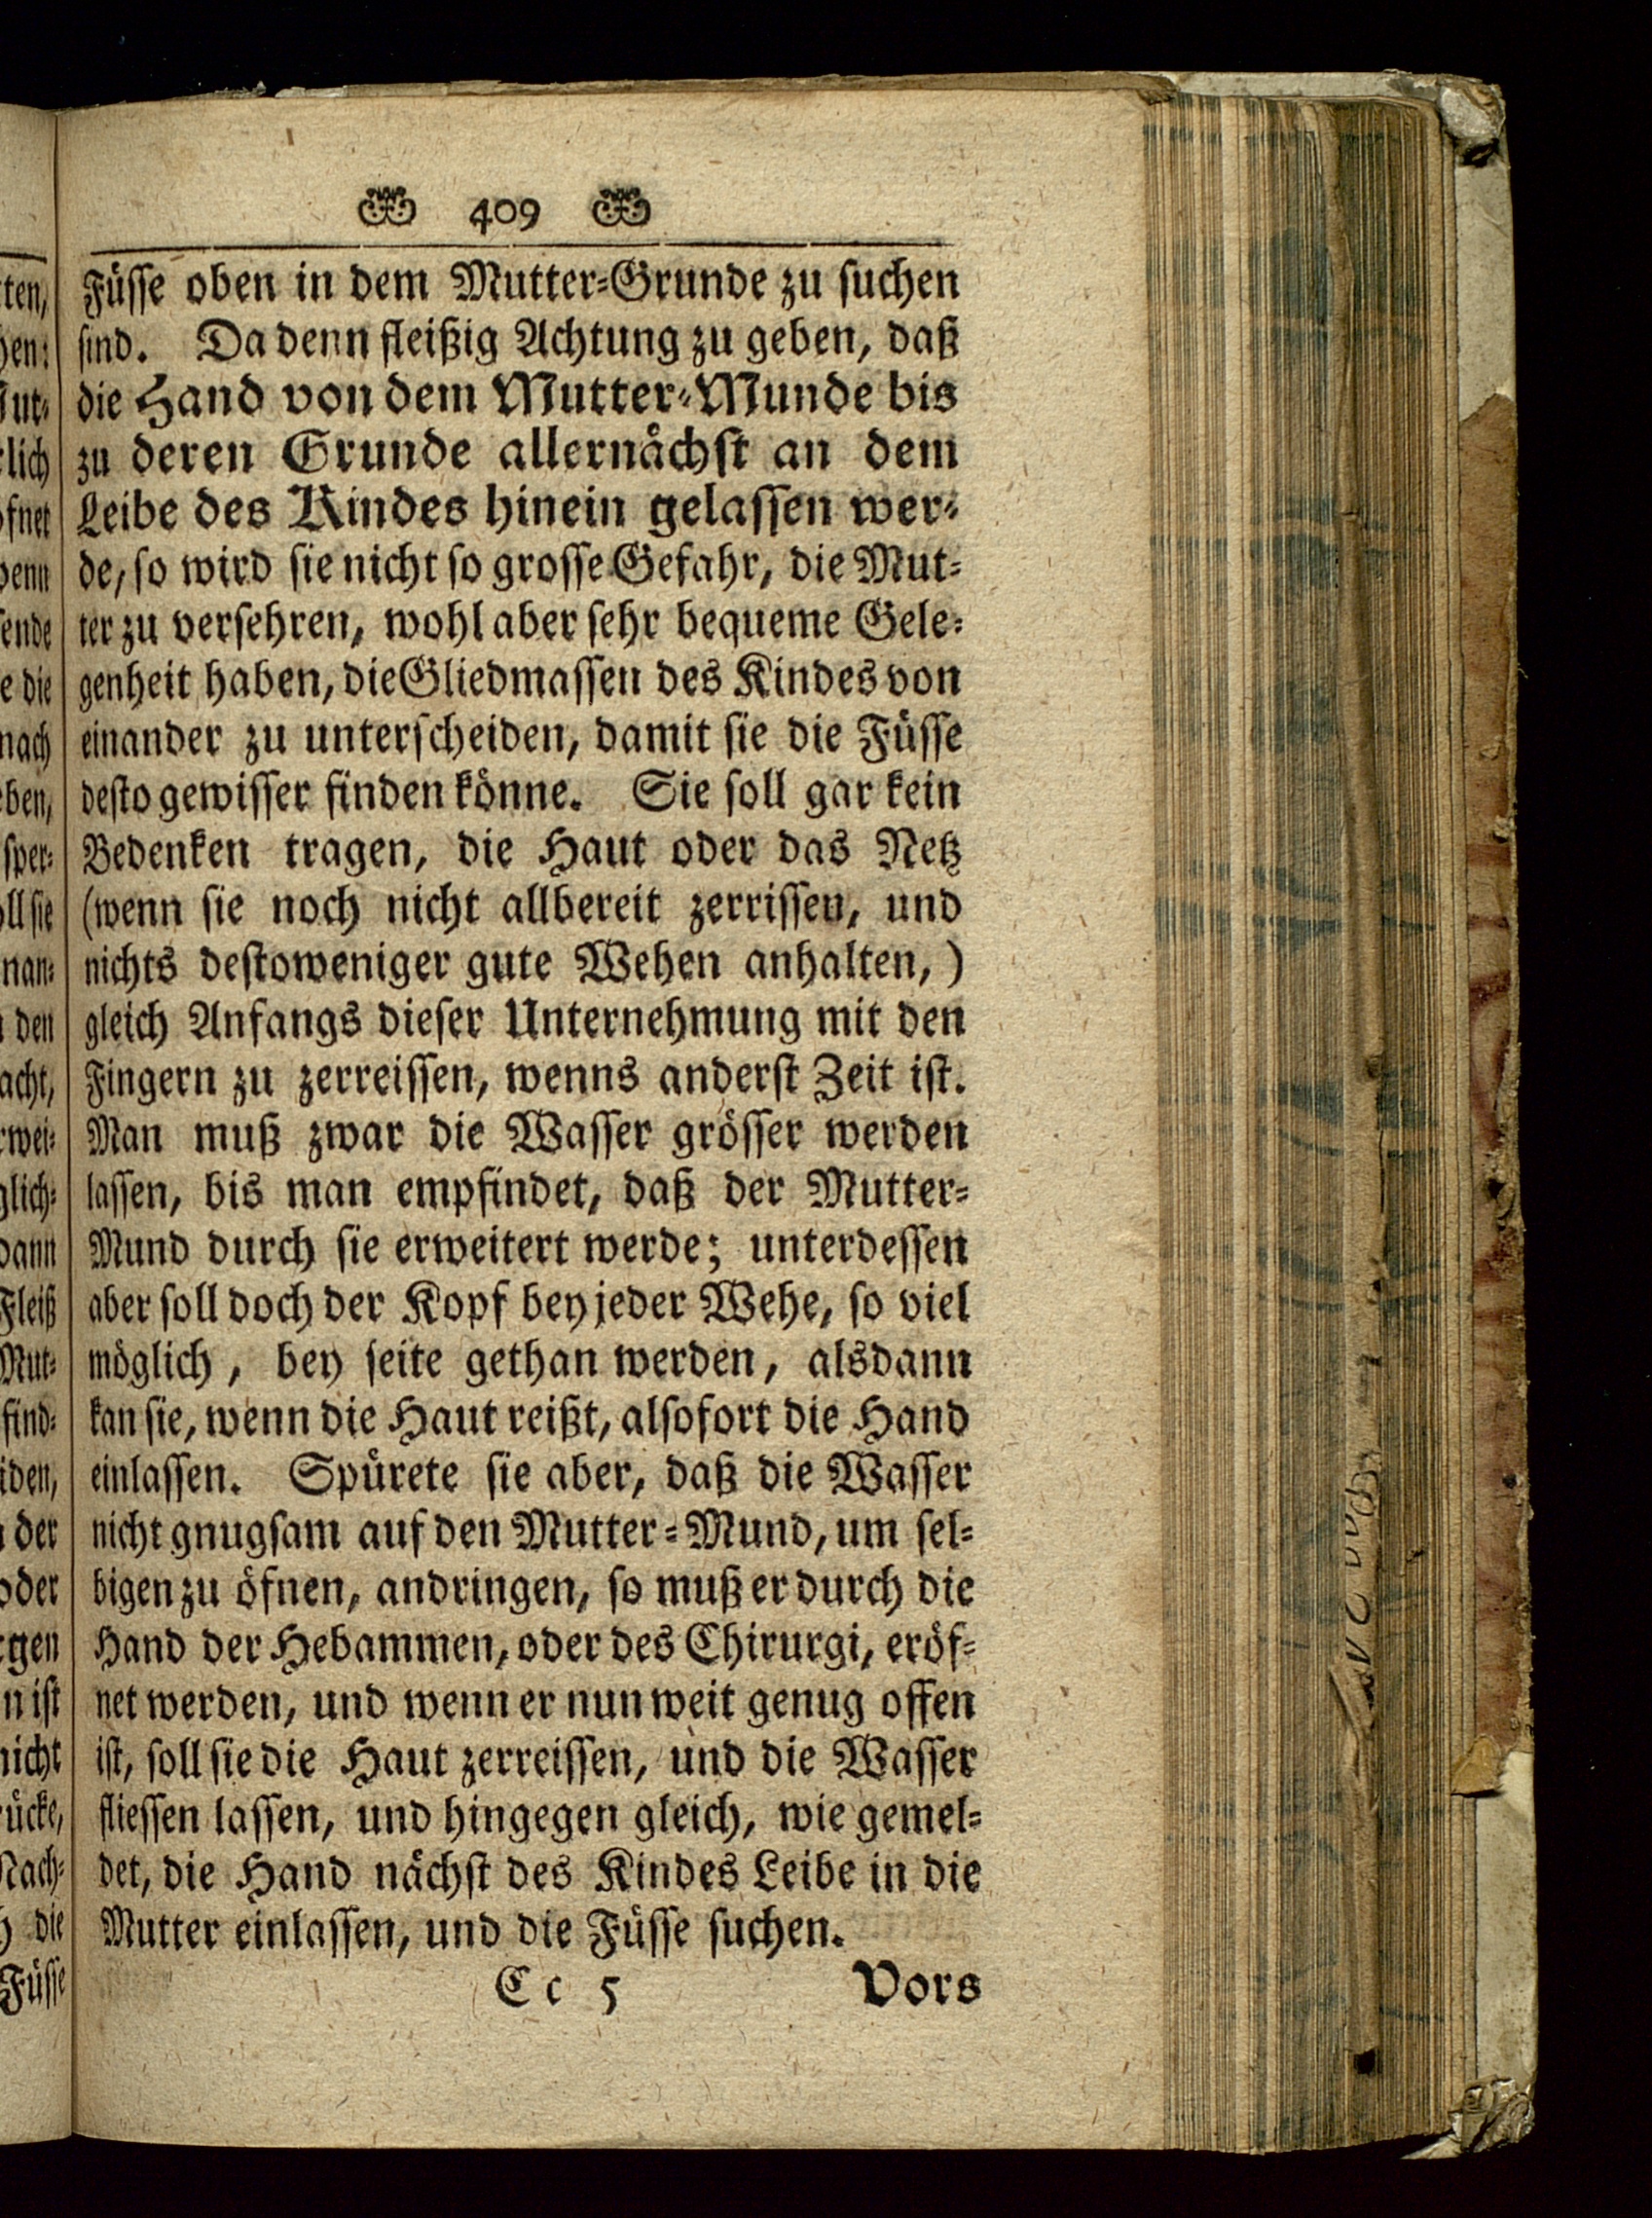 409
Füsse oben in dem Mutter-Grunde zu suchen
sind. Da denn fleißig Achtung zu geben, daß
die Hand von dem Mutter-Munde bis
zu deren Grunde allernächst an dem
Leibe des Kindes hinein gelassen wer-
de, so wird sie nicht so grosse Gefahr, die Mut-
ter zu versehren, wohl aber sehr bequeme Gele-
genheit haben, die Gliedmassen des Kindes von
einander zu unterscheiden, damit sie die Füsse
desto gewisser finden könne. Sie soll gar kein
Bedenken tragen, die Haut oder das Netz
(wenn sie noch nicht allbereit zerrissen, und
nichts destoweniger gute Wehen anhalten,)
gleich Anfangs dieser Unternehmung mit den
Fingern zu zerreissen, wenns anderst Zeit ist.
Man muß zwar die Wasser grösser werden
lassen, bis man empfindet, daß der Mutter-
Mund durch sie erweitert werde; unterdessen
aber soll doch der Kopf bey jeder Wehe, so viel
möglich, bey seite gethan werden, alsdann
kan sie, wenn die Haut reißt, alsofort die Hand
einlassen. Spürete sie aber, daß die Wasser
nicht gnugsam auf den Mutter-Mund, um sel-
bigen zu öfnen, andringen, so muß er durch die
Hand der Hebammen, oder des Chirurgi, eröf-
net werden, und wenn er nun weit genug offen
ist, soll sie die Haut zerreissen, und die Wasser
fliessen lassen, und hingegen gleich, wie gemel-
det, die Hand nächst des Kindes Leibe in die
Mutter einlassen, und die Füsse suchen.
Cc 5 Vors